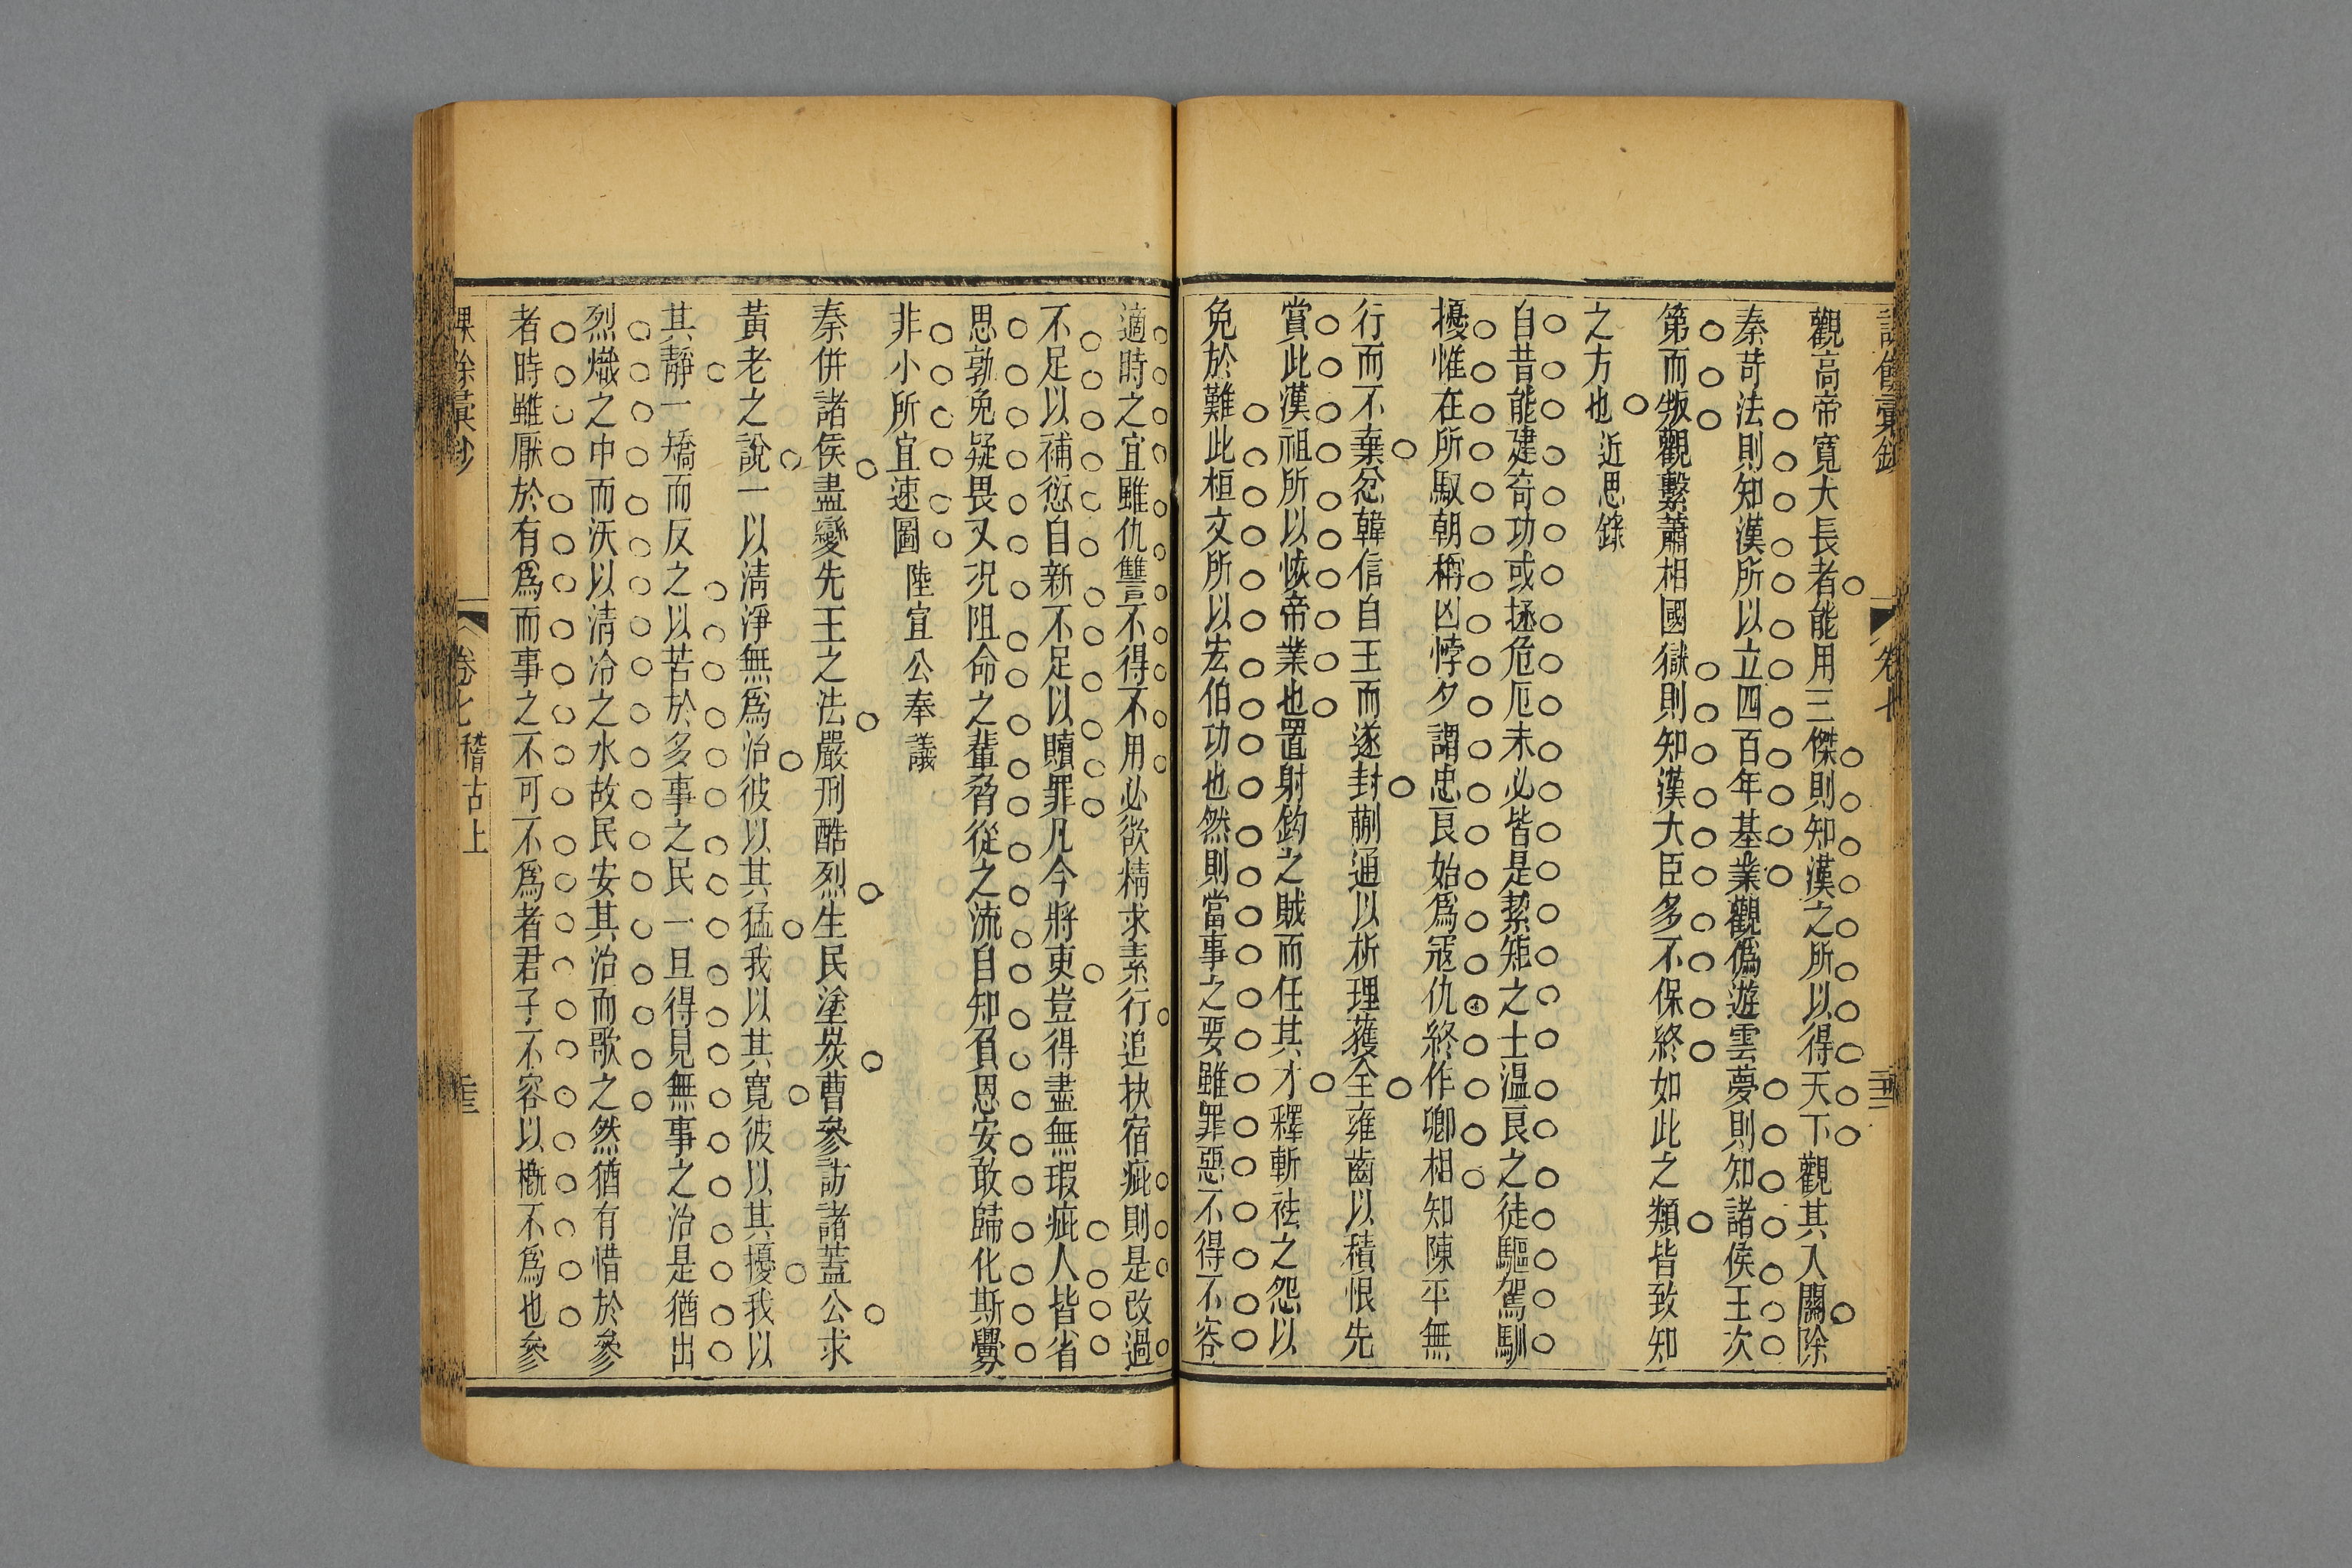 觀高帝寬大長者能用三傑則知漢之所以得天下觀其入關除
秦苛法則知漢所以立四百年基業觀僞遊雲夢則知諸侯王次
第而叛觀繫蕭相國獄則知漢大臣多不保終如此之類皆致知
之方也近思錄
自昔能建奇功或拯危厄未必皆是絜矩之士温良之徒驅駕馴
擾惟在所馭朝稱凶悖夕謂忠良始爲寇仇終作卿相知陳平無
行而不棄忿韓信自王而遂封蒯通以析理獲全雍齒以積恨先
賞此漢祖所以恢帝業也置射鈎之賊而任其才釋斬袪之怨以
免於難此桓文所以宏伯功也然則當事之要雖罪惡不得不容
適時之宜雖仇讐不得不用必欲精求素行追抉宿疵則是改過
不足以補愆自新不足以贖罪凡今將吏豈得盡無瑕疵人皆省
思孰免疑畏又况阻命之輩脅從之流自知負恩安敢歸化斯釁
非小所宜速圖陸宣公奉議
秦併諸侯盡變先王之法嚴刑酷烈生民塗炭曹參訪諸蓋公求
黃老之說一以清淨無爲治彼以其猛我以其寬彼以其擾我以
其靜一矯而反之以苦於多事之民一旦得見無事之治是猶出
烈熾之中而沃以清冷之水故民安其治而歌之然猶有惜於參
者時雖厭於有爲而事之不可不爲者君子不容以槪不爲也參
課餘彙鈔
卷七 稽古上